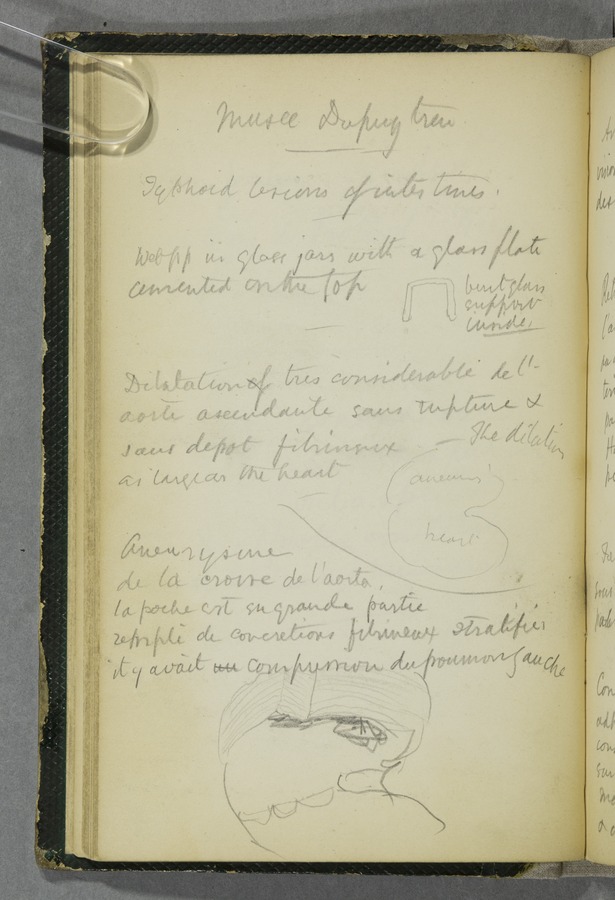 Musee Dupuytren
Typhoid lesions of intestines.
Wet pp in glass jars with a glass plate
cemented on the top
bent glass
support
inside,
Dilatation très considerable de l'-
aorte ascendante sans rupture &
sans depot fibrineux — The dilation
as large as the heart
aneurism
heart
Aneurysme
de la crosse de l'aorta,
la poche est en grande partie
remplie de concretions fibrineux stratifies
il y avait un compression du poumon gauche